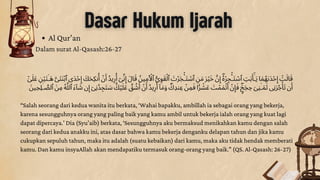 Dasar Hukum Ijarah
• Al Qur'an
Dalam surat Al-Qasash:26-27
"Salah seorang dari kedua wanita itu berkata, 'Wahai bapakku, ambillah ia sebagai orang yang bekerja,
karena sesungguhnya orang yang paling baik yang kamu ambil untuk bekerja ialah orang yang kuat lagi
dapat dipercaya.' Dia (Syu'aib) berkata, 'Sesungguhnya aku bermaksud menikahkan kamu dengan salah
seorang dari kedua anakku ini, atas dasar bahwa kamu bekerja denganku delapan tahun dan jika kamu
cukupkan sepuluh tahun, maka itu adalah (suatu kebaikan) dari kamu, maka aku tidak hendak memberati
kamu. Dan kamu insyaAllah akan mendapatiku termasuk orang-orang yang baik." (QS. Al-Qasash: 26-27)